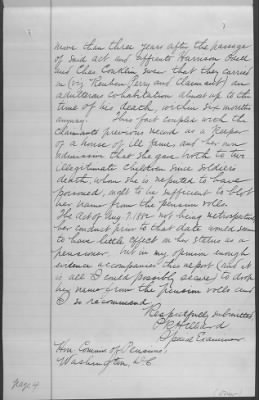 more than three years after the passage
of said act and affiants Harrison Hall
and Chas Conklin swear that they carried
on (viz Reuben Terry and Claimant) an
adulterous cohabitation almost up to the
time of his death, within six months
anyway. This fact coupled with the
claimants previous record as a keeper
of a house of ill fame, and her own
admission that she gave birth to two
illegitimate children since soldiers
death, whom she is reputed to have
poisoned, ought to be sufficient to blot
her name from the pension rolls.
The Act of Aug. 7, 1882 not being retrospective
her conduct prior to that date would seem
to have little effect on her status as a
pensioner. but in my opinion enough
evidence accompanies this report (and it
is all I could possibly secure) to drop
her name from the pension rolls and
I so recommend.
Respectfully submitted
Hilliard
Special Examiner
Hon Commr of Pensions,
Washington, D.C.
Page 4
(over)